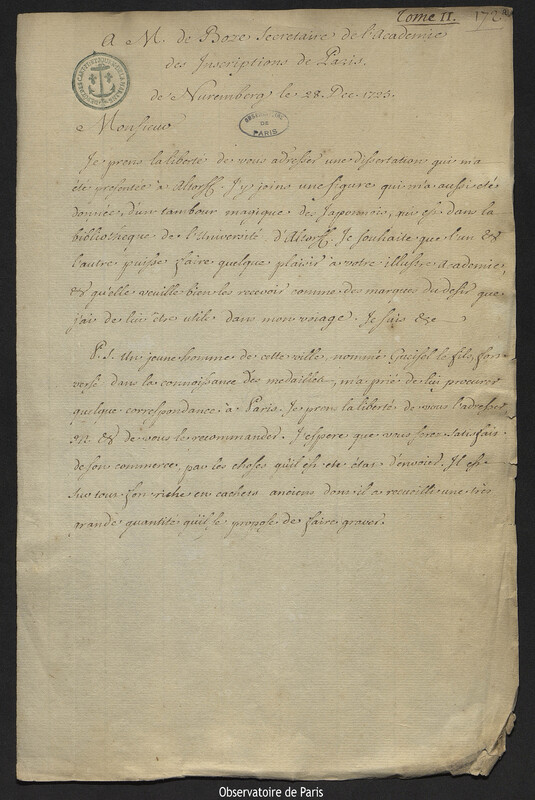 Tome II. 172
A M. de Boze Secretaire de l'academie
des Inscriptions de Paris.
de Nuremberg le 28. Dec. 1725.
OBSERVATOIRE DE PARIS
Monsieur
Je prens la liberté de vous adresser une dissertation qui m'a
été presentée à Altorff. J'y joins une figure qui m'a aussi été
donnée, d'un tambour magique des Japonnois, qui est dans la
bibliotheque de l'Université d'Altorff. Je souhaite que l'un &
l'autre puisse faire quelque plaisir à votre illustre academie,
& qu'elle veuille bien les recevoir comme des marques du desir que
j'ai de lui etre utile dans mon voiage. Je suis &c
P.S. Un jeune homme de cette ville, nommé le fils, fort
versé dans la connoissance des medailles, m'a prié de lui procurer
quelque correspondance à Paris. Je prens la liberté de vous l'adresser
M. & de vous le recommander. J'espere que vous serez satisfait
de son commerce, par les choses qu'il est en état d'envoier. Il est
sur tout fort riche en cachets anciens dont il a recueilli une très
grande quantité qu'il se propose de faire graver.
Observatoire de Paris